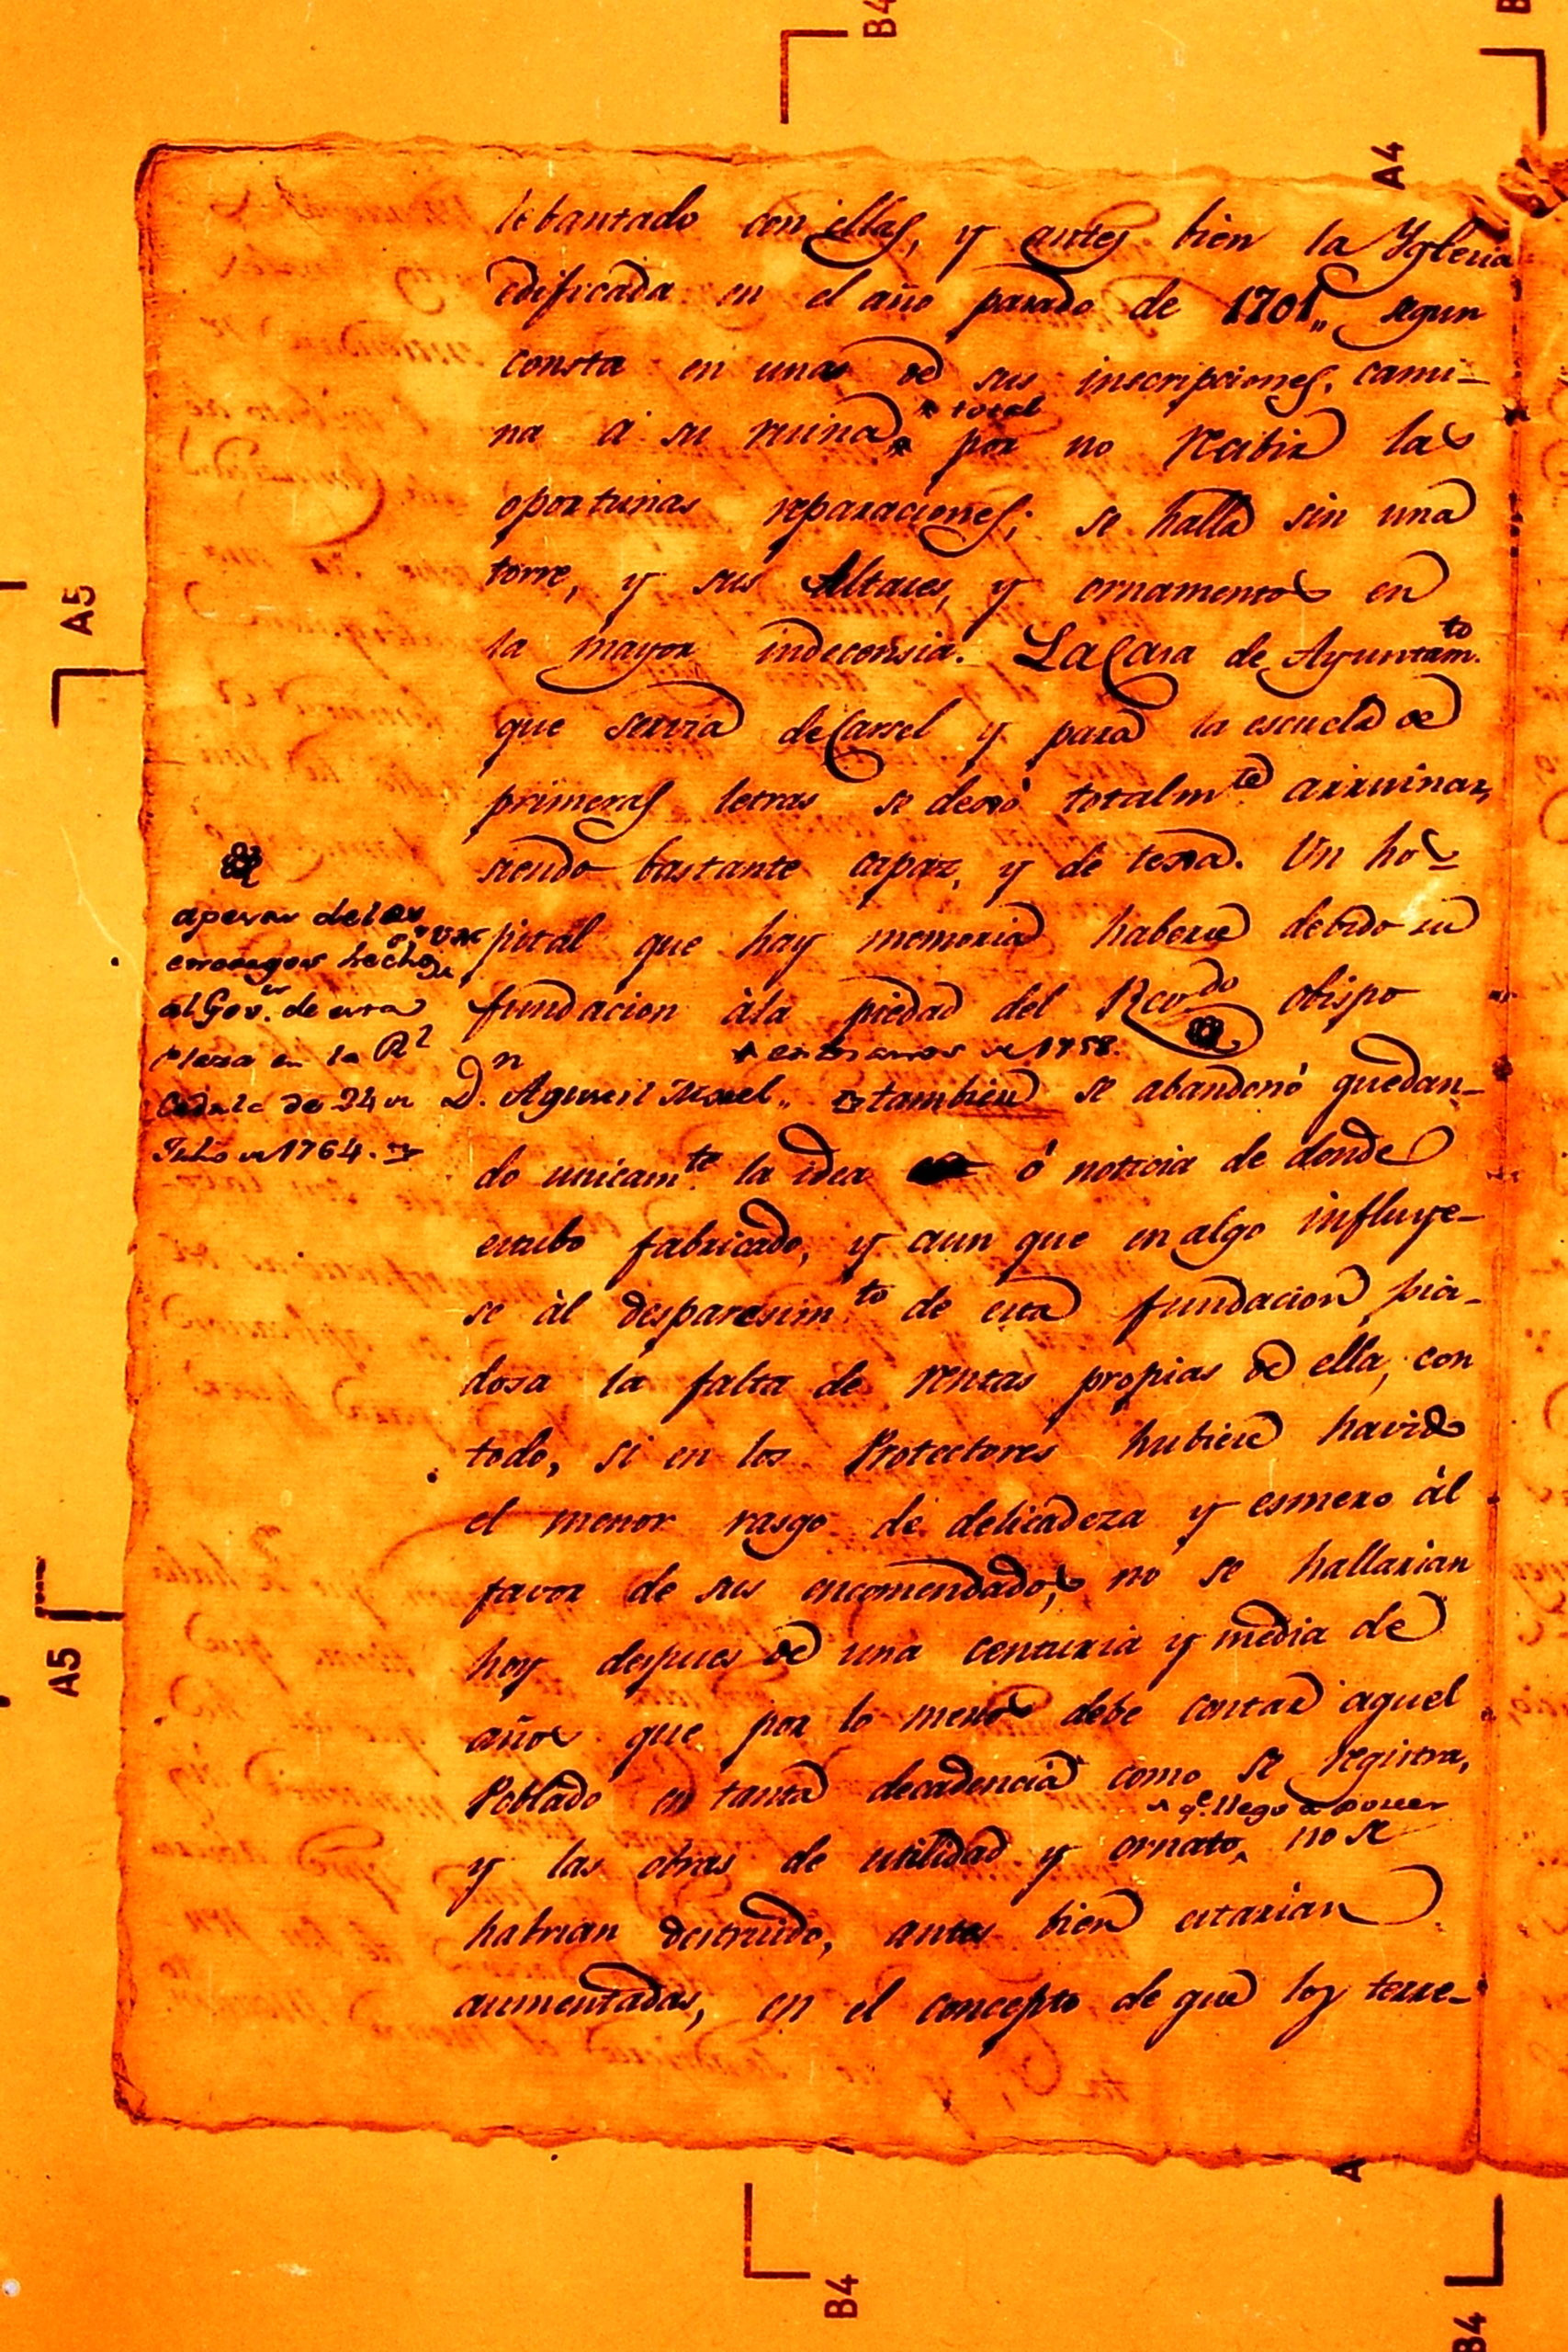 lebantado con ellas, y antes bien la Yglesia
edificada en el año pasado de 1701,, segun
consta en unas de sus inscripciones, cami-
na á su ruina total por no recibir las
oportunas reparaciones; se halla sin una
torre, y sus Altares, y ornamentos en
la mayor indecensia. La Casa de Ayuntam.to
que servia de Carsel y para la escuela de
primeras letras se dexó totalm.te arruinar,
siendo bastante capaz, y de texa. Un hos-
pital que hay memoria haberse debido su
fundacion àla piedad del Rev.do obispo
D.n Agustin tambien se abandonó quedan-
en los años de 1758.
do unicam.te la idea ó noticia de donde
estubo fabricado, y aun que en algo influye-
se àl desparesim.to de esta fundacion pia-
dosa la falta de rentas propias de ella, con
todo, si en los Protectores hubiese havido
el menor rasgo de delicadeza y esmero àl
favor de sus encomendados, no se hallarian
hoy despues de una centuria y media de
años que por lo menos debe contar aquel
Poblado en tanta decadencia como se registra,
y las obras de utilidad y ornato, q.e llegó a poseer no se
habrian destruido, antes bien estarian
aumentadas, en el concepto de que los terre-
apesar delos
encargos hechos
al Gov.or de esta
Plaza en la R.l
Cedula de 24 de
Julio de 1764.
A4
A5
A5
B4
B4
B4